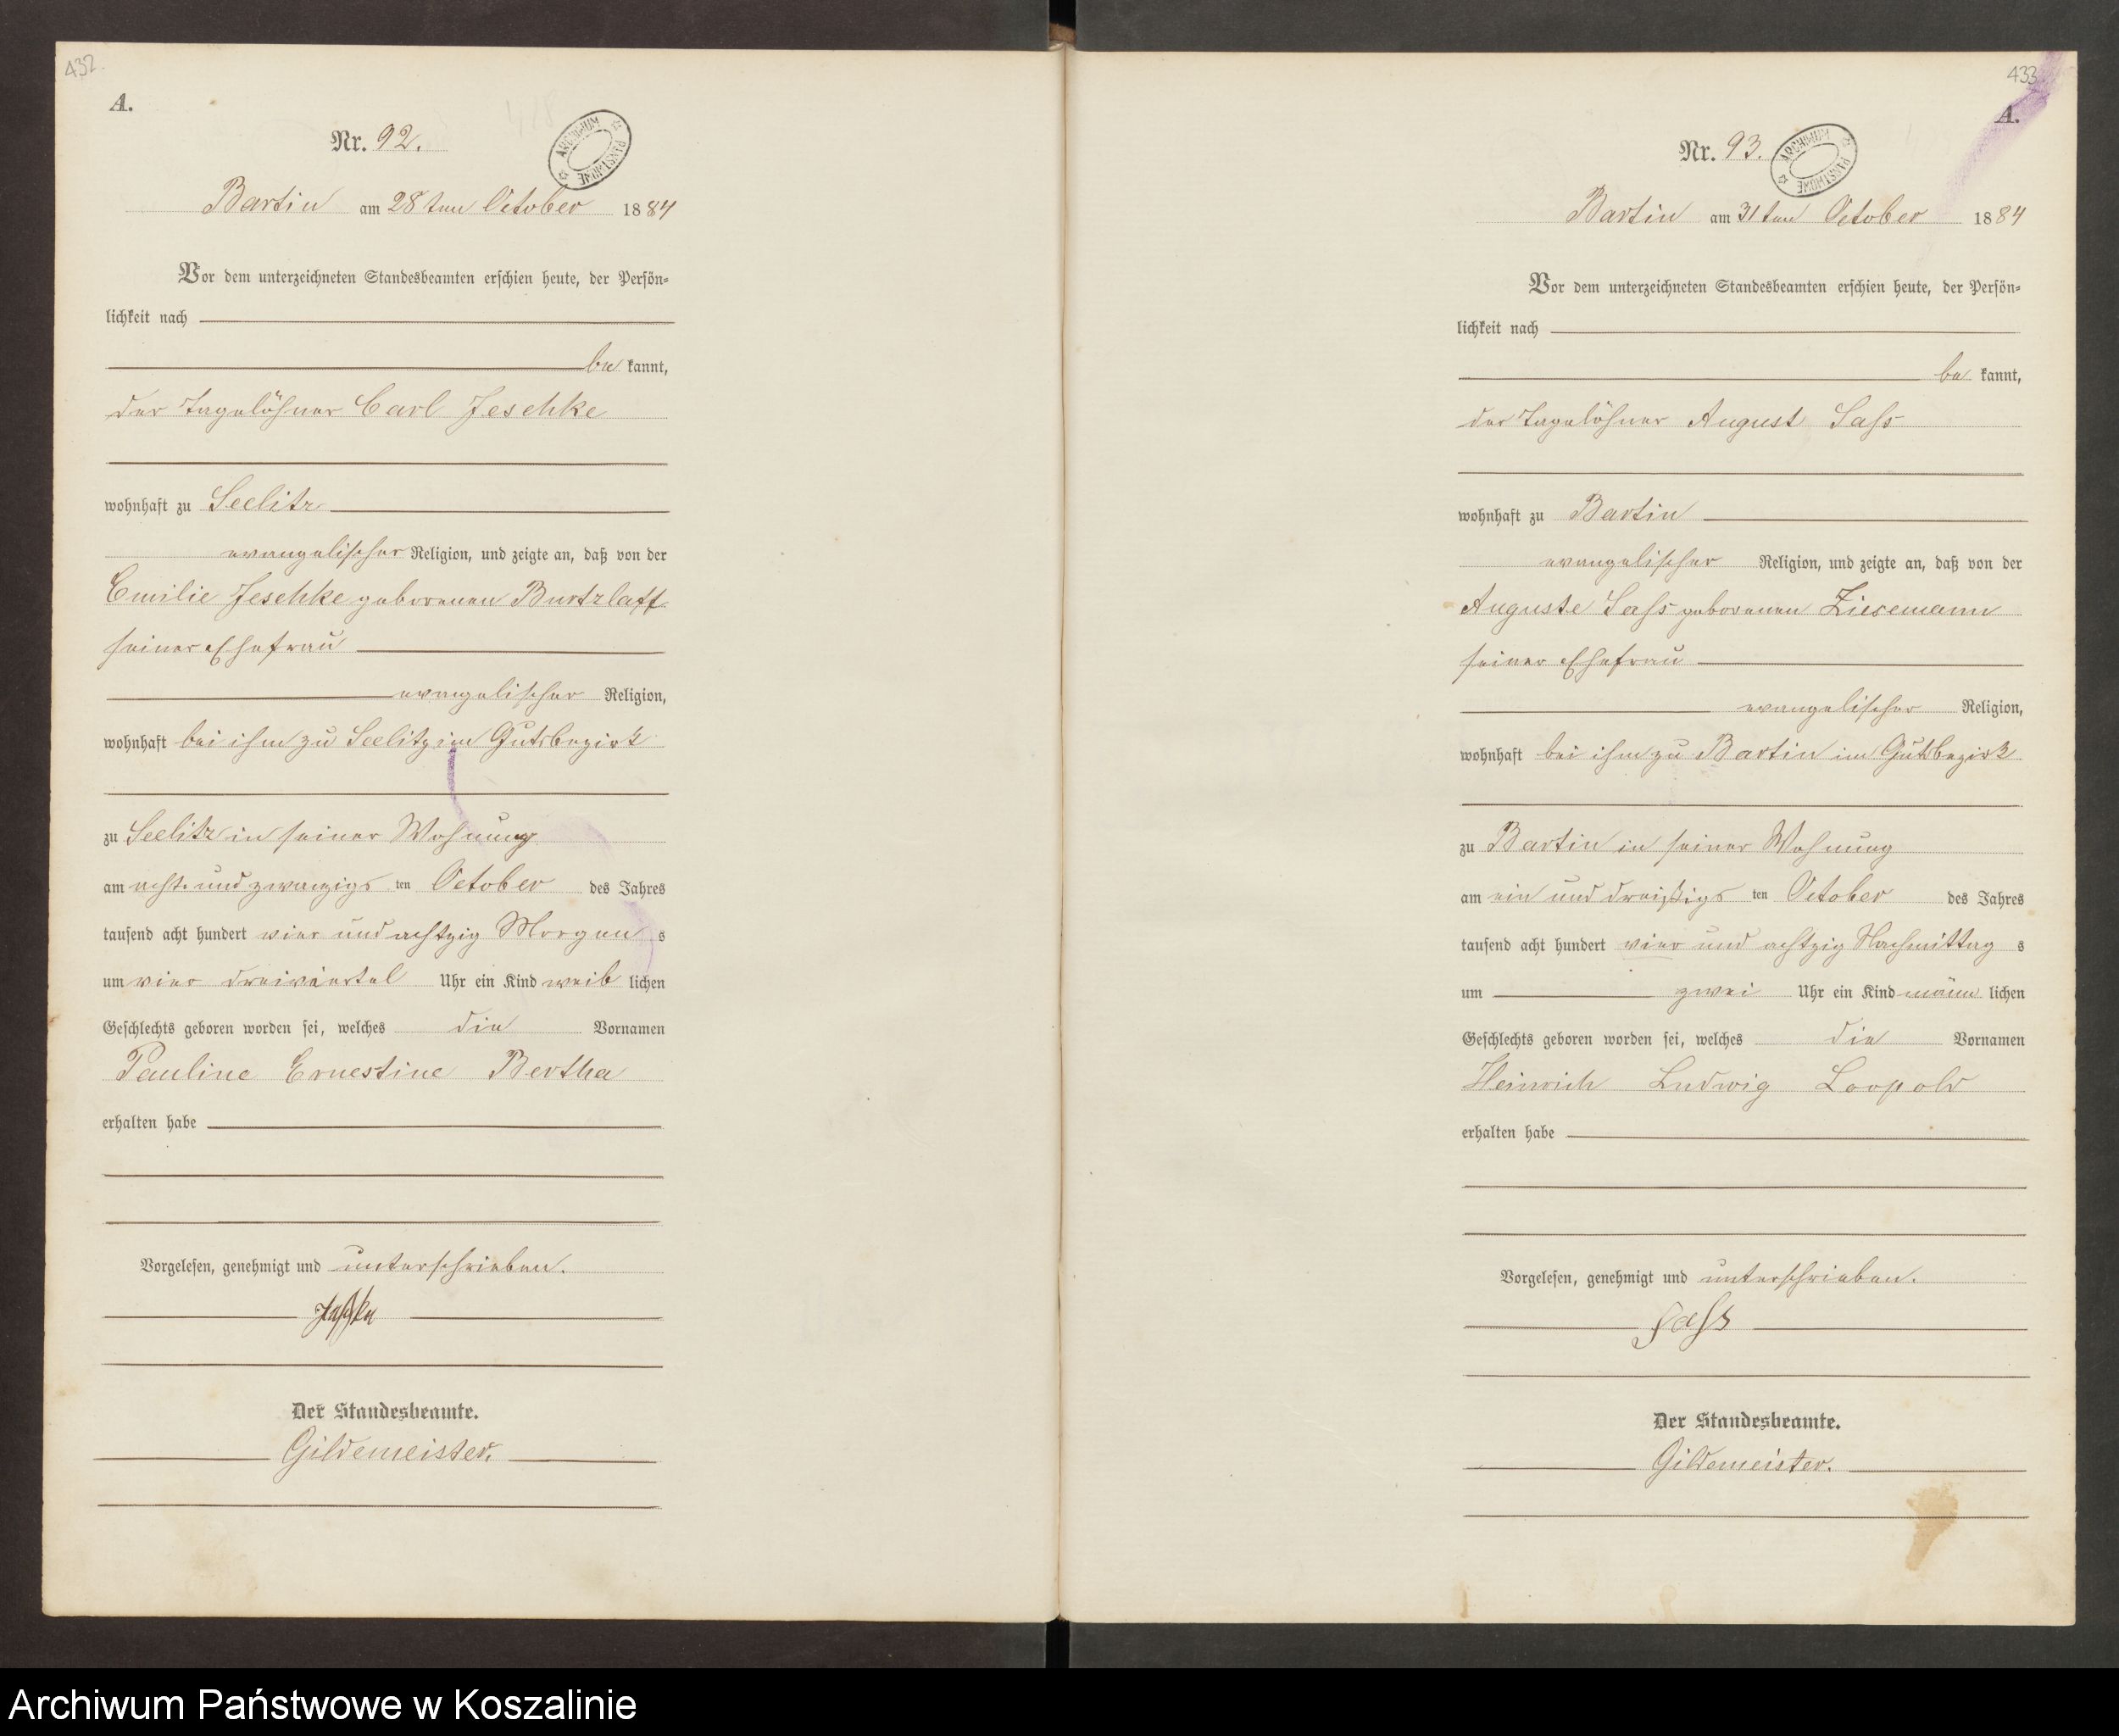 432.
A.
Nr. 92.
ARCHIWUM PAŃSTWOWE
Bartin am 28 ten October 1884
Vor dem unterzeichneten Standesbeamten erschien heute, der Persön-
lichkeit nach
be kannt,
der Tagelöhner Carl Jeschke
wohnhaft zu Seelitz
evangelischer Religion, und zeigte an, daß von der
Emilie Jeschke geborenen Burtzlaff
seiner Ehefrau
evangelischer Religion,
wohnhaft bei ihm zu Seelitz im Gutsbezirk
zu Seelitz in seiner Wohnung
am acht und zwanzigs ten October des Jahres
tausend acht hundert vier und achtzig Morgen s
um vier dreiviertel Uhr ein Kind weib lichen
Geschlechts geboren worden sei, welches die Vornamen
Pauline Ernestine Bertha
erhalten habe
Vorgelesen, genehmigt und unterschrieben.
Jeschke
Der Standesbeamte.
Gildemeister.
433
A.
Nr. 93.
ARCHIWUM PAŃSTWOWE
Bartin am 31 ten October 1884
Vor dem unterzeichneten Standesbeamten erschien heute, der Persön-
lichkeit nach
be kannt,
der Tagelöhner August Saß
wohnhaft zu Bartin
evangelischer Religion, und zeigte an, daß von der
Auguste Saß geborenen Ziesemann
seiner Ehefrau
evangelischer Religion,
wohnhaft bei ihm zu Bartin im Gutsbezirk
zu Bartin in seiner Wohnung
am ein und dreißigs ten October des Jahres
tausend acht hundert vier und achtzig Nachmittag s
um zwei Uhr ein Kind männ lichen
Geschlechts geboren worden sei, welches die Vornamen
Heinrich Ludwig Leopold
erhalten habe
Vorgelesen, genehmigt und unterschrieben.
Saß
Der Standesbeamte.
Gildemeister.
Archiwum Państwowe w Koszalinie